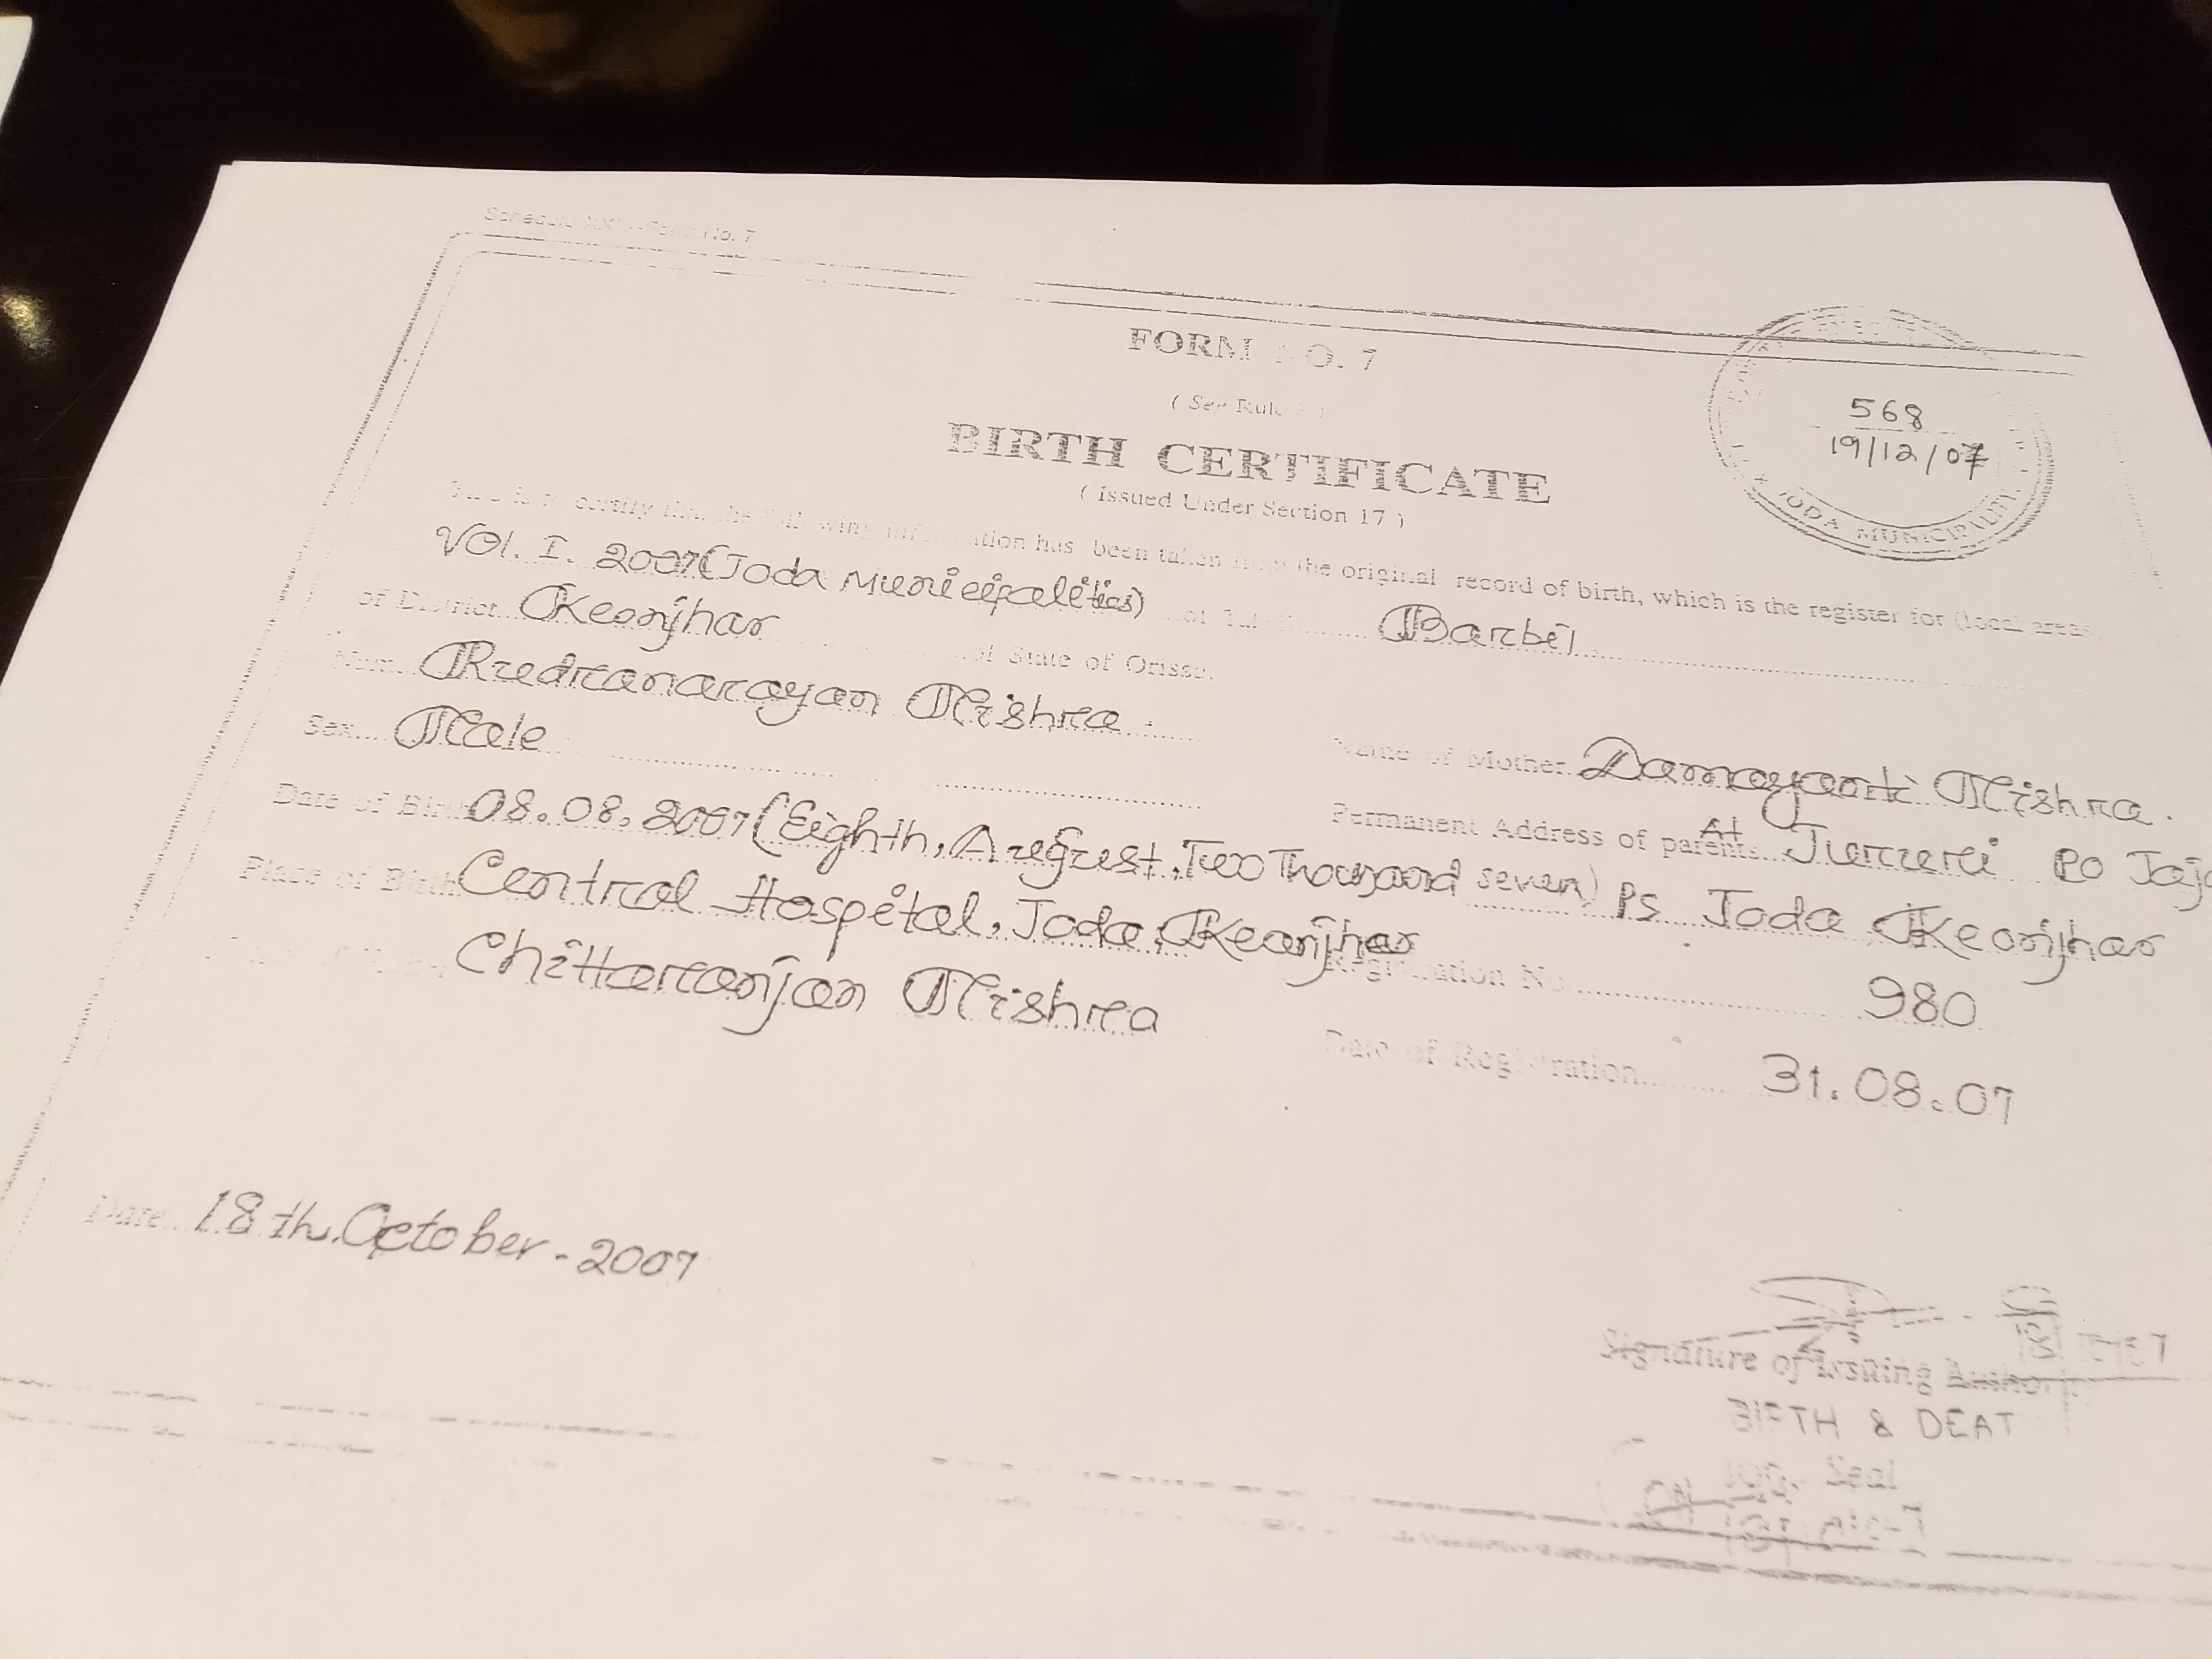 Schedule Form No. 7
FORM NO. 7
( See Rule
BIRTH CERTIFICATE
( Issued Under Section 17 )
568
19/12/07
JODA MUNICIPALITY
This is to certify that the following information has been taken from the original record of birth, which is the register for (local areas
VOl. I. 2007(Joda Municipalities) of
Barbil
of District Keonjhar of State of Orissa.
Name Rudranarayan Mishra.
Sex Male
Name of Mother Damayanti Mishra.
Date of Birth 08.08.2007(Eighth, August, Two Thousand seven)
Permanent Address of parents At Jururi Po
Place of Birth Central Hospital, Joda, Keonjhar
Ps Joda Keonjhar
Chittaranjan Mishra
Registration No 980
Date of Registration 31.08.07
Date 18th. October - 2007
Signature of Issuing
BIRTH & DEAT
Seal